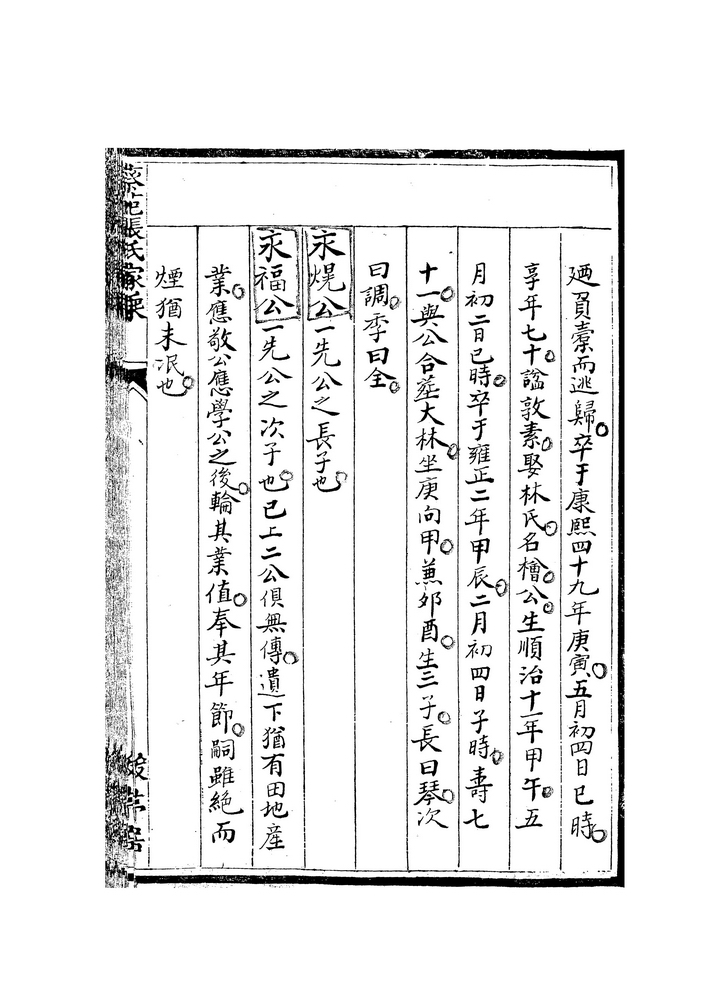 廼負橐而逃歸卒于康熙四十九年庚寅五月初四日巳時
享年七十諡敦素娶林氏名檜公生順治十一年甲午五
月初二日巳時卒于雍正二年甲辰二月初四日子時壽七
十一與公合塟大林坐庚向甲兼夘酉生三子長曰琴次
曰調季曰全
永熀公一先公之長子也
永福公一先公之次子也已上二公俱無傳遺下猶有田地產
業應敬公應學公之後輪其業值奉其年節嗣雖絶而
煙猶未泯也
張氏家乘